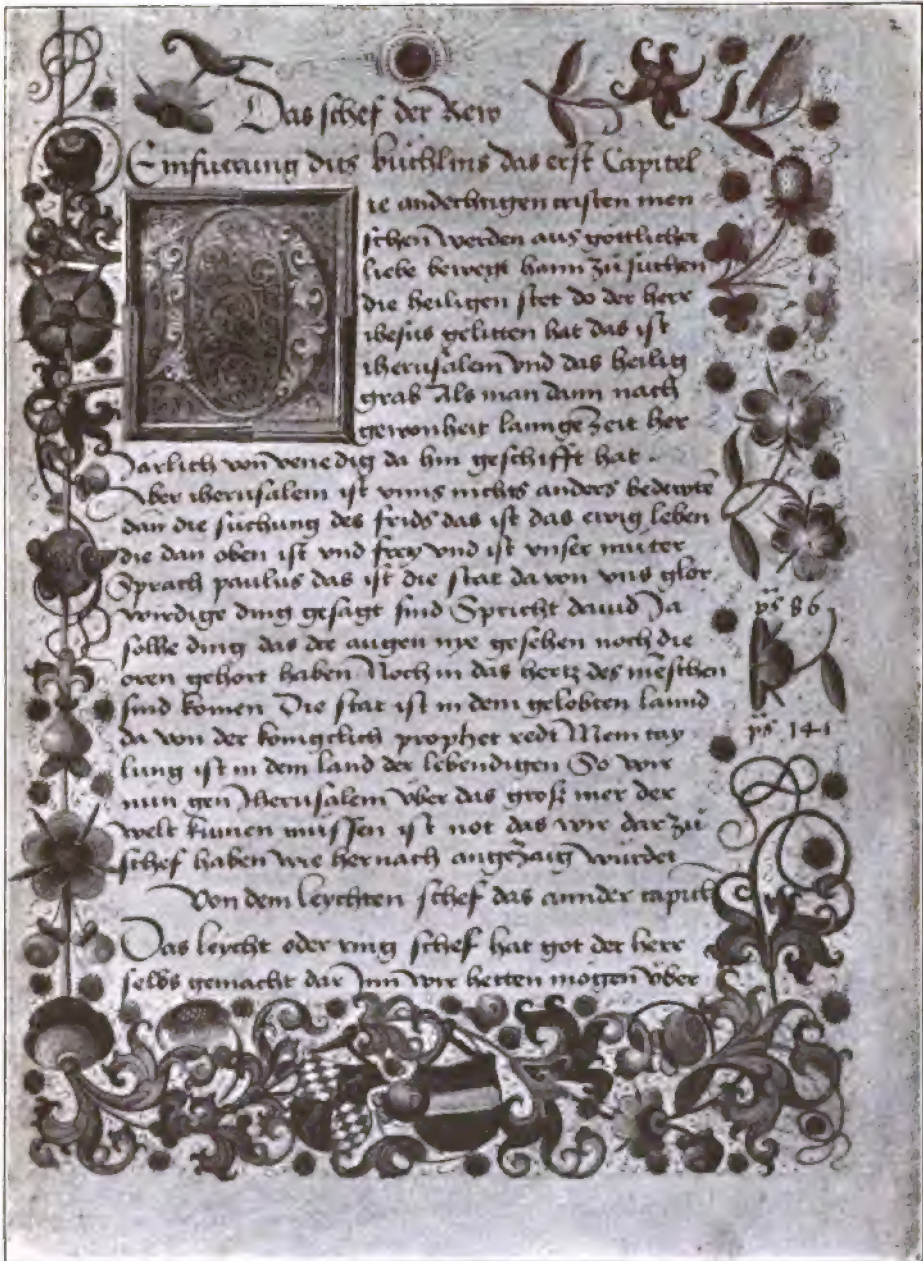 2
Das schef der Rew
Einfuerung dits büchlins das erst Capitel
Die andechtigen cristen men
schen werden aus gottlicher
liebe bewegt hann zů suchen
die heiligen stet do der herr
ihesus gelitten hat das ist
iherusalem vnd das heilig
grab Als man dann nach
gewonheit lannge zeit her
Järlich von venedig da hin geschifft hat
Aber iherusalem ist vnns nichts anders bedewte
dan die suchung des frids das ist das ewig leben
die dan oben ist vnd frey vnd ist vnser muter
Sprach paulus das ist die stat da von vns glor
wirdige ding gesagt sind Spricht dauid Ja
sollie ding das die augen nye gesehen noch die
oren gehort haben Noch in das hertz des meschen
sind komen Die stat ist in dem gelobten lannd
da von der königclich prophet redt Mein tay
lung ist in dem land der lebendigen So wir
nun gen Iherusalem vber das groß mer der
welt kumen müssen ist not das wir dar zů
schef haben wie hernach angezaigt würdet
Von dem leychten schef das annder capitl
Das leycht oder ring schef hat got der herr
selbs gemacht dar Jnn wir hetten mögen vber
ps 86
ps 141